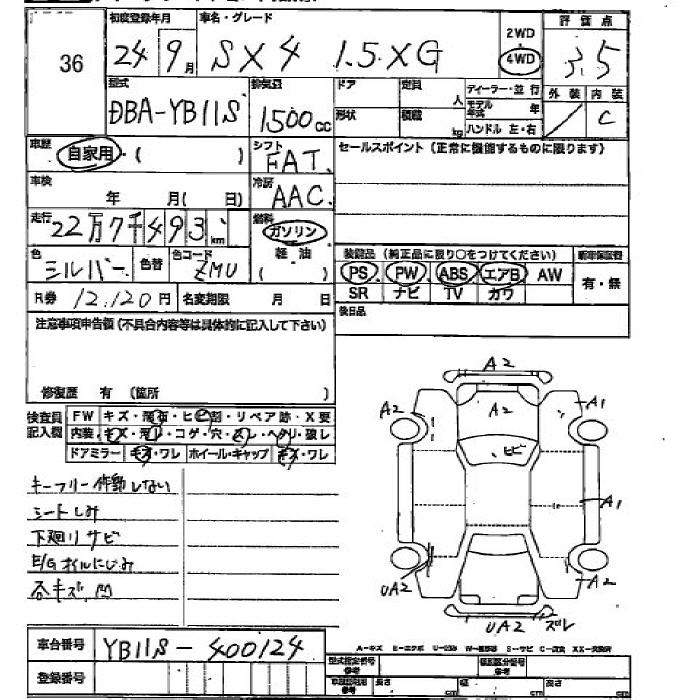 36
初度登録年月 車名・グレード 2WD 評価点
24 9月 SX4 1.5XG 4WD 3.5
型式 排気量 ドア 定員 人 ディーラー・並行 外装 内装
DBA-YB11S 1500cc 形状 積載 kg モデル年式 年 C
ハンドル 左・右
車歴 自家用・( ) シフト FAT セールスポイント (正常に機能するものに限ります)
車検 年 月( 日) 冷房 AAC
走行 22万7千493km 燃料 ガソリン
軽油
( )
色 シルバー 色替 色コード ZMU 装備品 (純正品に限り○をつけてください) 新車保証書
PS PW ABS エアB AW 有・無
SR ナビ TV カワ
R券 12,120円 名変期限 月 日
後日品
注意事項申告欄 (不具合内容等は具体的に記入して下さい)
修復歴 有 (箇所 )
検査員記入欄 FW キズ・飛石・ヒビ割・リペア跡・X要
内装 キズ・汚レ・コゲ・穴・スレ・ヘタリ・破レ
ドアミラー キズ・ワレ ホイール・キャップ キズ・ワレ
キーフリー作動しない
シートしみ
下廻りサビ
E/Gオイルにじみ
各キズ、凹
A2
A2
A2
A1
ヒビ
A1
UA2
A2
UA2
ズレ
車台番号 YB11S-400124
登録番号
A-キズ E-エクボ U-凹み W-補修跡 S-サビ C-腐食 XX-交換済
型式指定番号 参考 類別区分番号 参考
車検証記載 参考 長さ cm 幅 cm 高さ cm